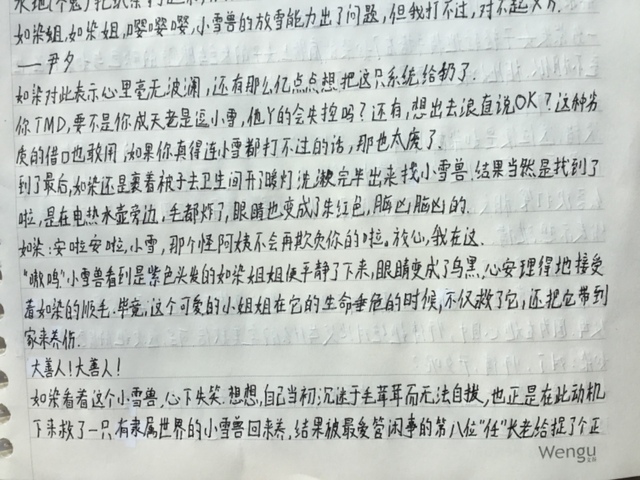 如染组,如染姐,嘤嘤嘤,小雪兽的放雪能力出了问题,但我打不过,对不起
——尹夕
如染对此表示心里毫无波澜,还有那么亿点点想把这只系统给扔了.
你TMD,要不是你成天老是逗小雪,他丫的会失控吗?还有,想出去浪直说OK?这种劣
质的借口也敢用,如果你真得连小雪都打不过的话,那也太废了.
到了最后,如染还是裹着被子去卫生间开了暖灯洗漱完毕出来找小雪兽.结果当然是找到了
啦,是在电热水壶旁边,毛都炸了,眼睛也变成了朱红色,脑凶脑凶的.
如染:安啦安啦,小雪,那个怪阿姨不会再欺负你的啦。放心,我在这.
“嗷呜”小雪兽看到是紫色头发的如染姐姐便平静了下来,眼睛变成了乌黑,心安理得地接受
着如染的顺毛.毕竟,这个可爱的小姐姐在它的生命垂危的时候,不仅救了它,还把它带到
家来养伤.
大善人!大善人!
如染看着这个小雪兽,心下失笑.想想,自己当初沉迷于毛茸茸而无法自拔,也正是在此动机
下来救了一只有隶属世界的小雪兽回来养,结果被最爱管闲事的第八位“任”长老给捉了个正
Wengu